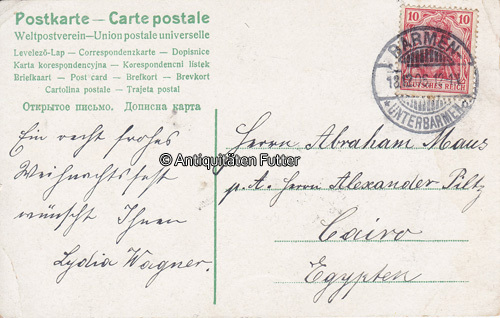 Postkarte — Carte postale
Weltpostverein—Union postale universelle
Levelező-Lap — Correspondenzkarte — Dopisnice
Karta korespondencyjna — Korespondenční lístek
Briefkaart — Post card — Brefkort — Brevkort
Cartolina postale — Trajeta postal
Открытое письмо. Дописна карта
10 10
DEUTSCHES REICH
BARMEN
* UNTERBARMEN
Ein recht frohes
Weihnachtsfest
wünscht Ihnen
Lydia Wagner.
© Antiquitäten Futter
Herrn Abraham Maus
p. A. Herrn Alexander Piltz
Cairo
Egypten